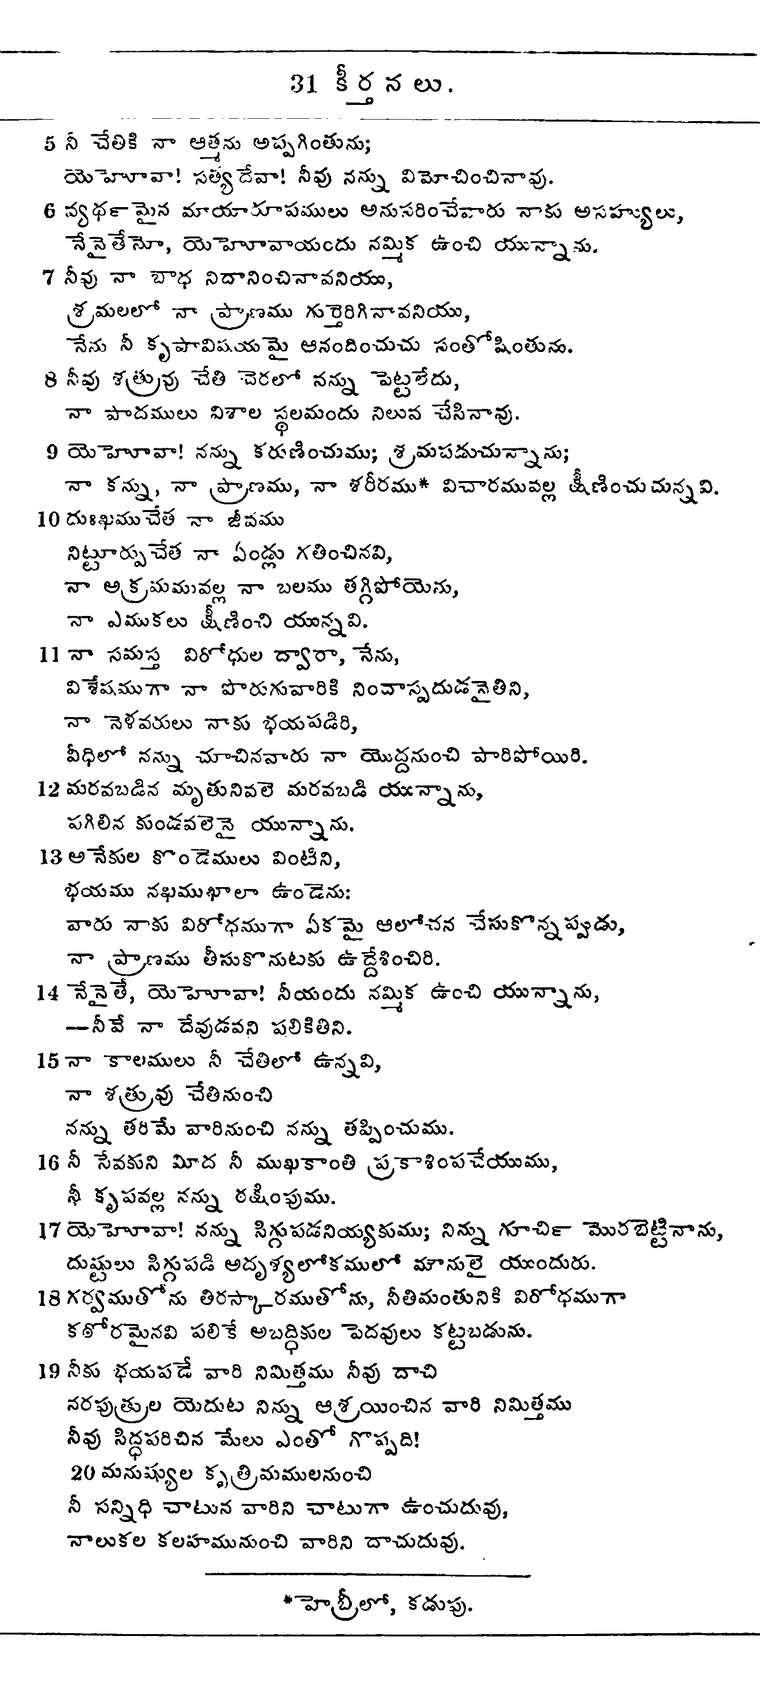 31 కీర్తనలు.
5 నీ చేతికి నా ఆత్మను అప్పగింతును;
యెహెూవా! సత్యదేవా! నీవు నన్ను విమోచించినావు.
6 వ్యథ౯మైన మాయారూపములు అనుసరించేవారు నాకు అసహ్యులు,
నేనైతేనో, యెహెూవాయందు నమ్మిక ఉంచి యున్నాను.
7 నీవు నా బాధ నిదానించినావనియు,
శ్రమలలో నా ప్రాణము గుర్తెరిగినావనియు,
నేను నీ కృపావిషయమై ఆనందించుచు సంతోషింతును.
8 నీవు శత్రువు చేతి చెరలో నన్ను పెట్టలేదు,
నా పాదములు విశాల స్థలమందు నిలువ చేసినావు.
9 యెహెూవా! నన్ను కరుణించుము; శ్రమపడుచున్నాను;
నా కన్ను, నా ప్రాణము, నా శరీరము* విచారమువల్ల క్షీణించుచున్నవి.
10 దుఃఖముచేత నా జీవము
నిట్టూర్పుచేత నా ఏండ్లు గతించినవి,
నా అక్రమమువల్ల నా బలము తగ్గిపోయెను,
నా ఎముకలు క్షీణించి యున్నవి.
11 నా సమస్త విరోధుల ద్వారా, నేను,
విశేషముగా నా పొరుగువారికి నిందాస్పదుడనైతిని,
నా నెళవరులు నాకు భయపడిరి,
వీధిలో నన్ను చూచినవారు నా యొద్దనుంచి పారిపోయిరి.
12 మరవబడిన మృతునివలె మరవబడి యున్నాను,
పగిలిన కుండవలెనై యున్నాను.
13 అనేకుల కొండెములు వింటిని,
భయము నఖముఖాలా ఉండెను:
వారు నాకు విరోధముగా ఏకమై ఆలోచన చేసుకొన్నప్వుడు,
నా ప్రాణము తీసుకొనుటకు ఉద్దేశించిరి.
14 నేనైతే, యెహెూవా! నీయందు నమ్మిక ఉంచి యున్నాను,
—నీవే నా దేవుడవని పలికితిని.
15 నా కాలములు నీ చేతిలో ఉన్నవి,
నా శత్రువు చేతినుంచి
నన్ను తరిమే వారినుంచి నన్ను తప్పించుము.
16 నీ సేవకుని మీద నీ ముఖకాంతి ప్రకాశింపచేయుము,
నీ కృపవల్ల నన్ను రక్షింపుము.
17 యెహెూవా! నన్ను సిగ్గుపడనియ్యకుము; నిన్ను గూచి౯ మొరబెట్టినాను,
దుష్టులు సిగ్గుపడి అదృశ్యలోకములో మౌనులై యుందురు.
18 గర్వముతోను తిరస్కారముతోను, నీతిమంతునికి విరోధముగా
కఠోరమైనవి పలికే అబద్ధికుల పెదవులు కట్టబడును.
19 నీకు భయపడే వారి నిమిత్తము నీవు దాచి
నరపుత్రుల యెదుట నిన్ను ఆశ్రయించిన వారి నిమిత్తము
నీవు సిద్ధపరిచిన మేలు ఎంతో గొప్పది!
20 మనుష్యుల కృత్రిమములనుంచి
నీ సన్నిధి చాటున వారిని చాటుగా ఉంచుదువు,
నాలుకల కలహమునుంచి వారిని దాచుదువు.
*హెబ్రీలో, కడుపు.